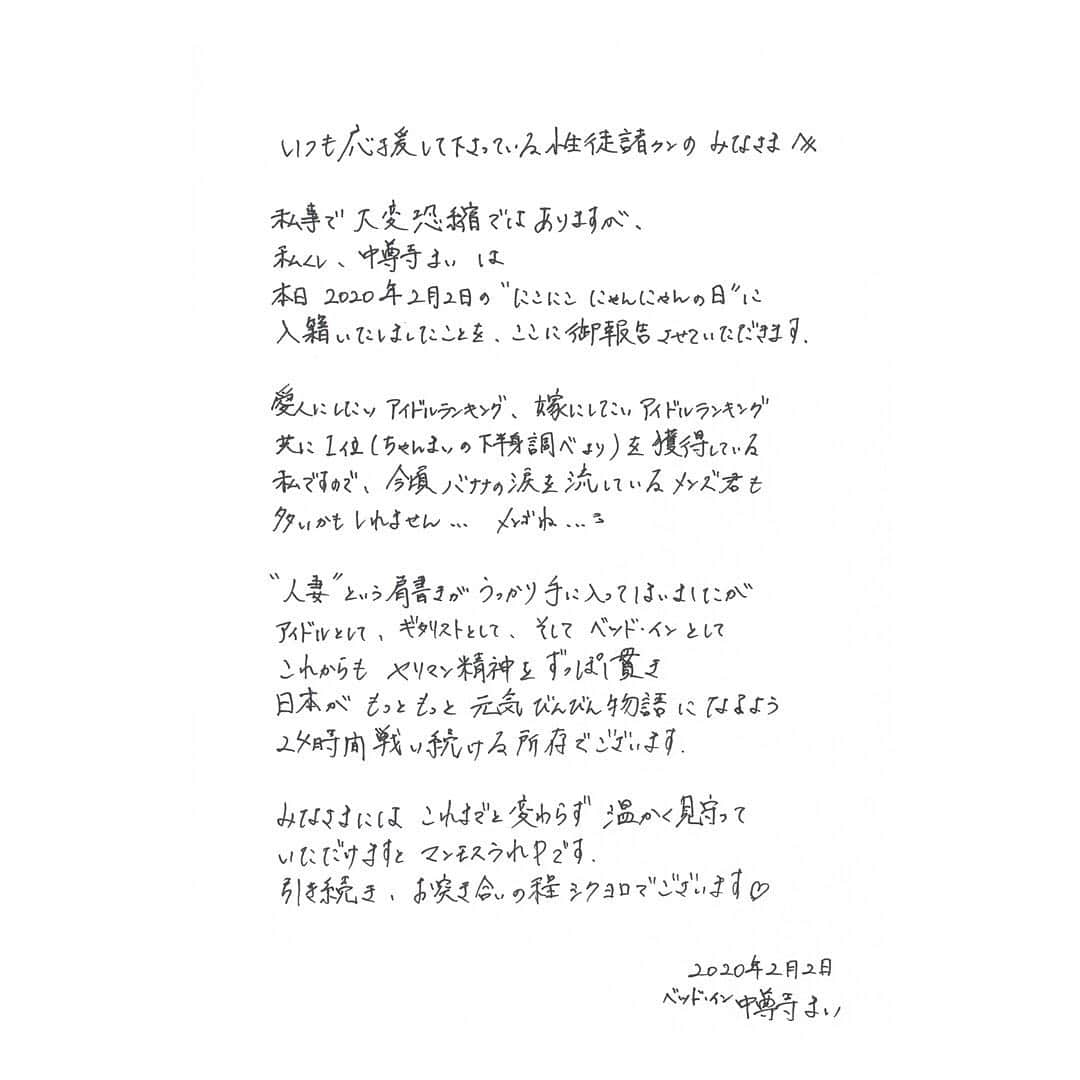 いつも応援して下さっている性徒諸クンの みなさまへ
私事で 大変恐縮ではありますが、
私くし、中尊寺まい は
本日 2020年2月2日の"にこにこ にゃんにゃんの日"に
入籍いたしましたことを、ここに御報告させていただきます.
愛人にしたい アイドルランキング、嫁にしたい アイドルランキング
共に 1位(ちゃんまいの下半身調べより)を獲得している
私ですので、今頃 バナナの涙を流しているメンズ君も
多いかもしれません… メンゴね…
"人妻"という肩書きが うっかり手に入ってしまいましたが
アイドルとして、ギタリストとして、そして ベッド・イン として
これからも ヤリマン精神を ずっぽし貫き
日本が もっともっと 元気 びんびん物語 になるよう
24時間戦い続ける所存でございます.
みなさまには これまでと変わらず 温かく見守って
いただけますと マンモスうれPです.
引き続き、お突き合いの程シクヨロでございます♡
2020年2月2日
ベッド・イン 中尊寺まい